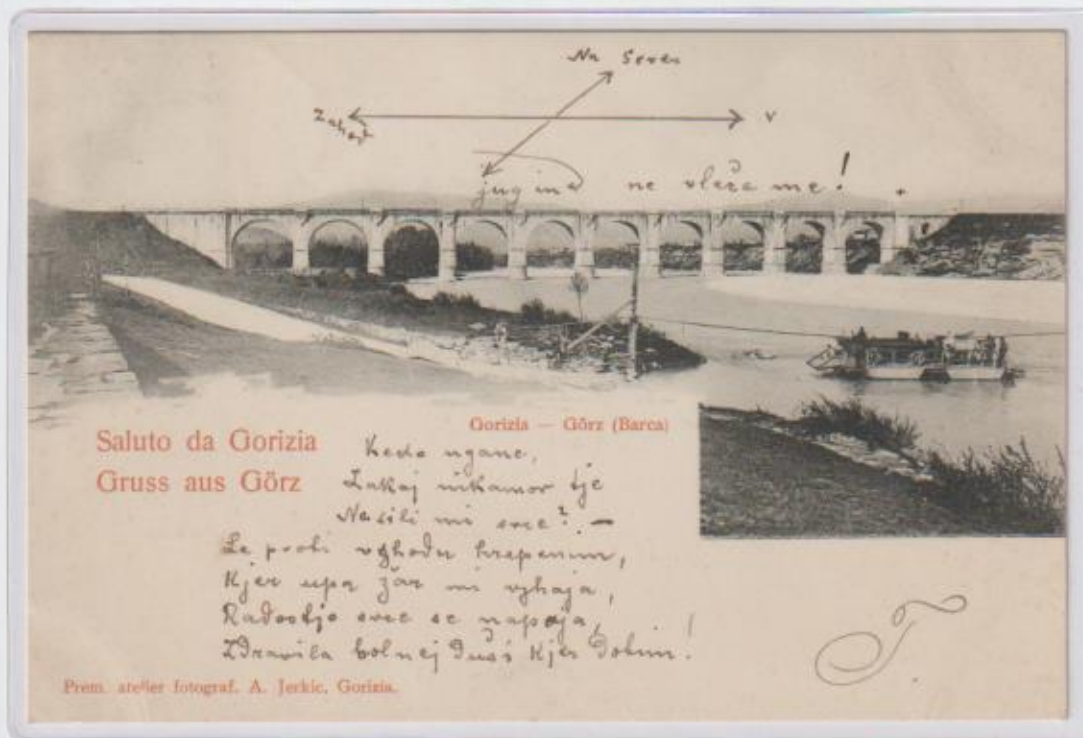 Na sever
Zahod
V
jug in a ne vleče me!
Saluto da Gorizia
Gruss aus Görz
Gorizia — Görz (Barca)
Kedo ugane,
Zakaj nikamor tje
Na sili mi srce? —
Le proti vzhodu hrepenim,
Kjer upa žar mi vzhaja,
Radostjo srce se napaja,
Zdravila bolnej duši kjer dobim!
T
Prem. atelier fotograf. A. Jerkic, Gorizia.